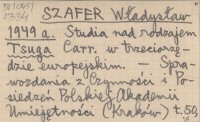 SZAFER Władysław
1949 a. Studia nad rodzajem
Tsuga Carr. w trzeciorzę-
dzie europejskim. — Spra-
wozdania z Czynności i Po-
siedzeń Polskiej Akademii
Umiejętności (Kraków) t. 50,